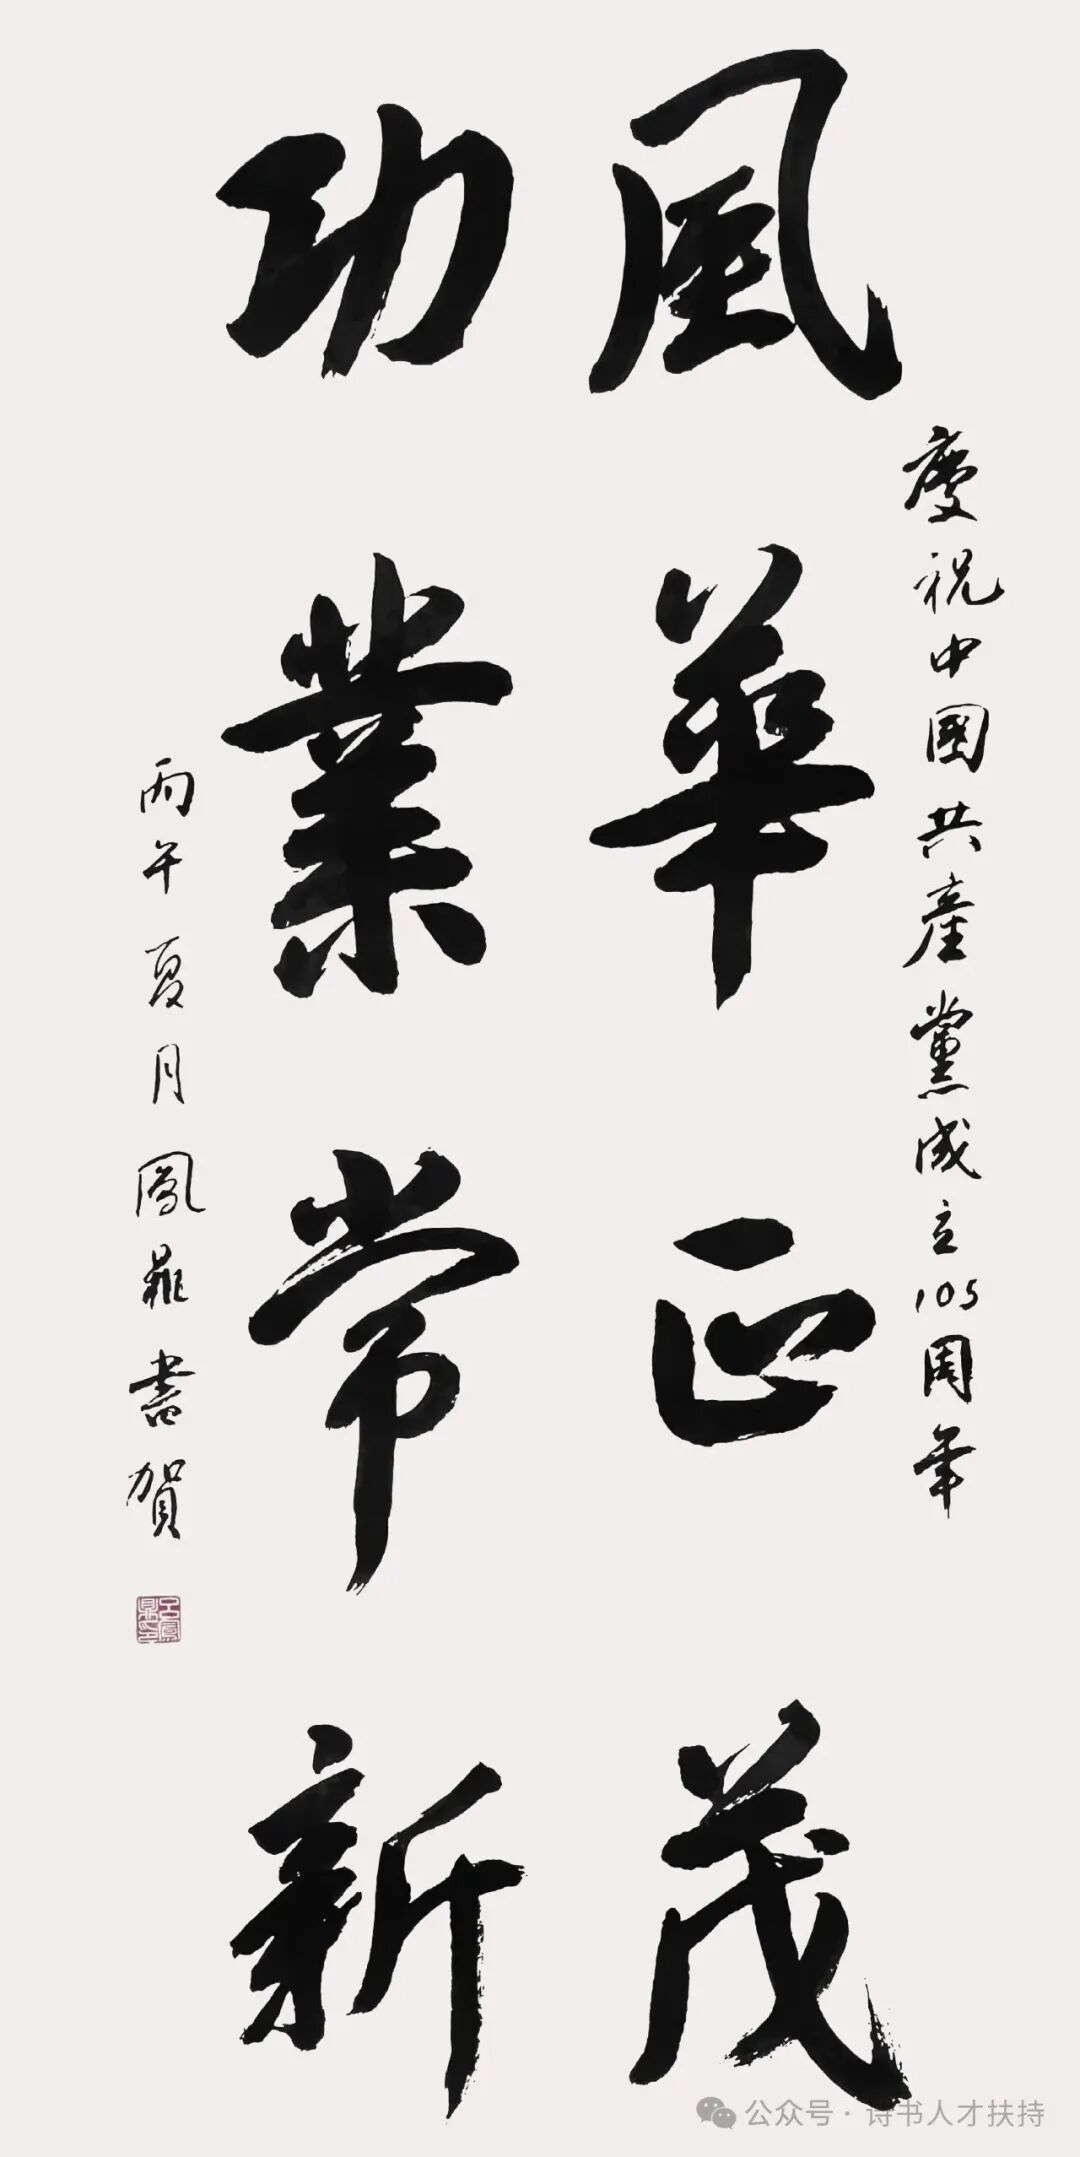 慶祝中國共產黨成立105周年
風華正茂
功業常新
丙午夏月鳳鼎書賀
呂鳳鼎印
公众号 · 诗书人才扶持